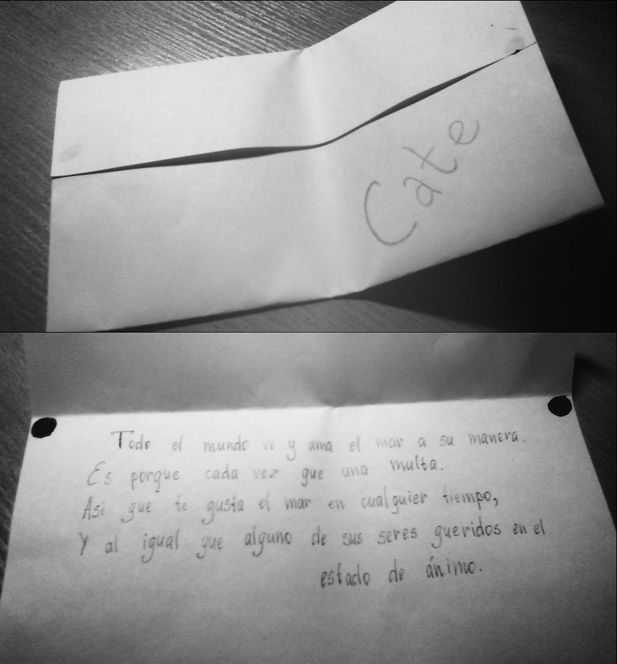 Cate
Todo el mundo ve y ama el mar a su manera.
Es porque cada vez que una multa.
Asi que te gusta el mar en cualquier tiempo,
Y al igual que alguno de sus seres queridos en el
estado de ánimo.